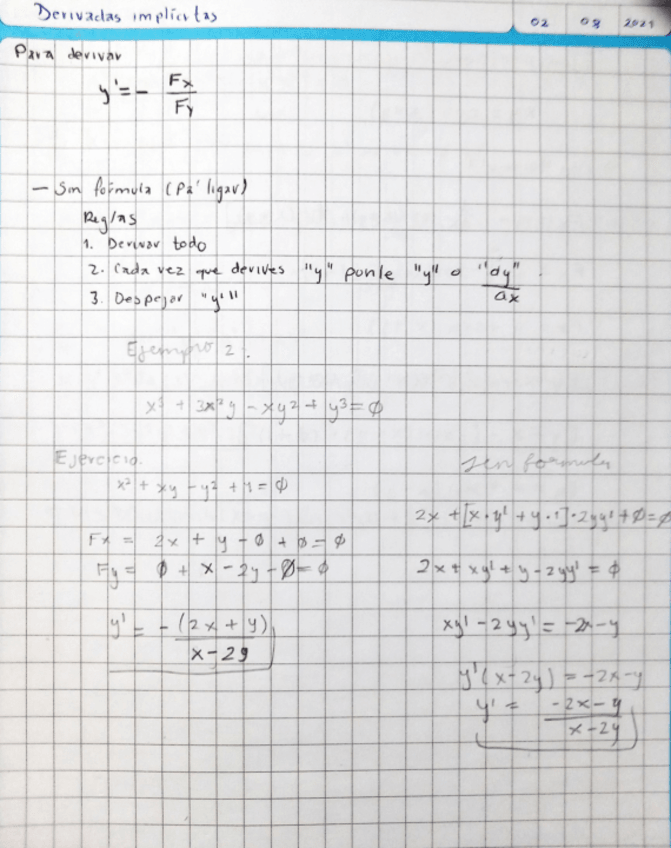 Derivadas implícitas
02 08 2021
Para derivar
y' = - Fx / Fy
— Sin fórmula (Pa' ligar)
Reglas
1. Derivar todo
2. Cada vez que derives "y" ponle "y'" o "dy/dx"
3. Despejar "y'"
Ejemplo 2:
x³ + 3x²y - xy² + y³ = 0
Ejercicio.
x² + xy - y² + 1 = 0
Fx = 2x + y - 0 + 0 = 0
Fy = 0 + x - 2y - 0 = 0
y' = -(2x + y) / x - 2y
sin formula
2x + [x · y' + y · 1] · 2yy' + 0 = 0
2x + xy' + y - 2yy' = 0
xy' - 2yy' = -2x - y
y'(x - 2y) = -2x - y
y' = -2x - y / x - 2y